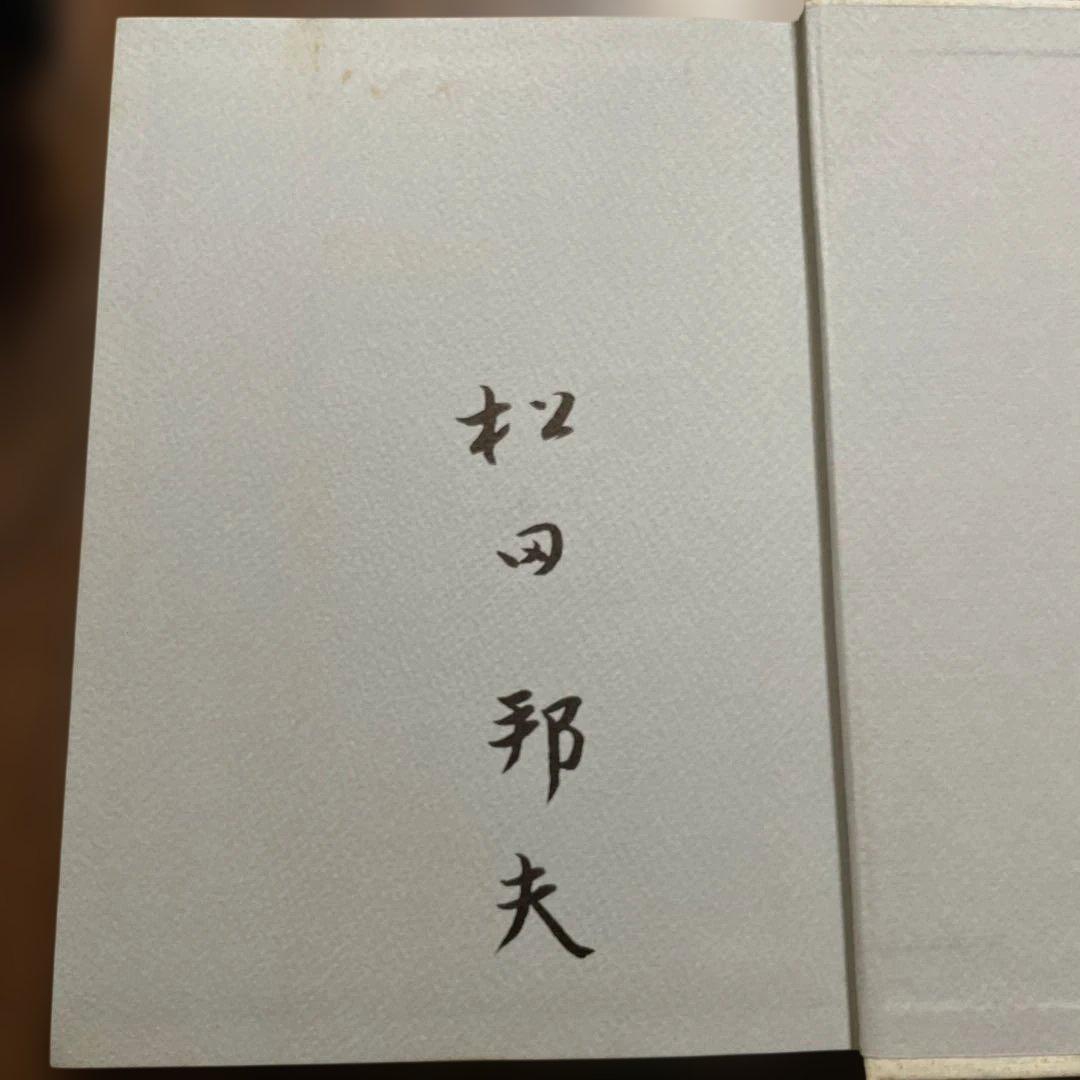 松田邦夫